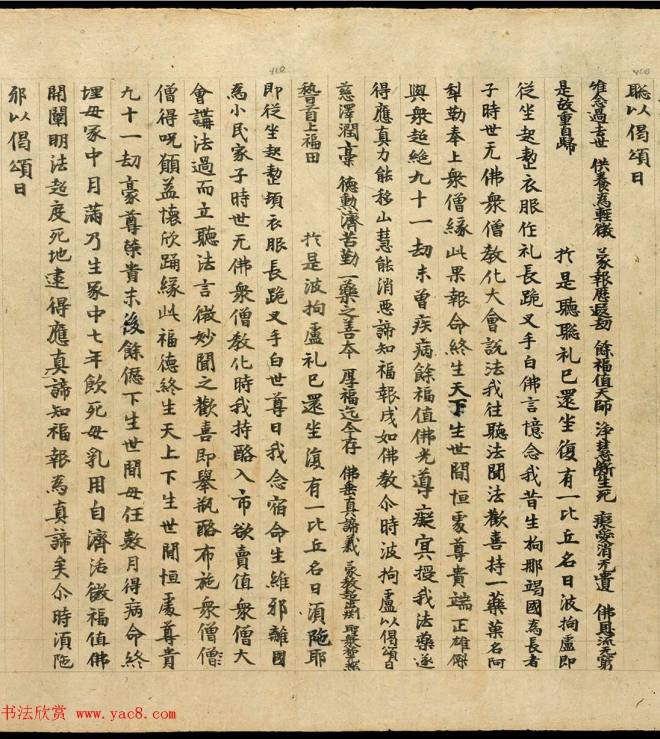 聡以偈頌曰
惟念過去世 供養為輕微 蒙報歷遐劫 餘福值天師 淨慧斷生死 癡愛消无遺 佛恩流无窮
是故重自歸 扵是聽聡礼已還坐復有一比丘名曰波拘盧即
從坐起整衣服作礼長跪叉手白佛言憶念我昔生拘那竭國為長者
子時世无佛衆僧教化大會說法我往聽法聞法歡喜持一藥藥名阿
梨勒奉上衆僧緣此果報命終生天下生世間恒處尊貴端正雄傑
與衆超絶九十一劫未曽疾病餘福值佛光導癡冥授我法藥逐
得應真力能移山慧能消惡諦知福報戌如佛教尒時波拘盧以偈頌曰
慈澤潤枯槀 德勲濟苦勤 一藥之善夲 厚福迄今存 佛垂真諦義 蒙教超 聖衆
稽首上福田 扵是波拘盧礼已還坐復有一比丘名曰湏陁耶
即從坐起整頓衣服長跪叉手白世尊曰我念宿命生維邪離國
為小民家子時世无佛衆僧教化時我持酪入市欲賣值衆僧大
會講法過而立聽法言微妙聞之歡喜即舉瓶酪布施衆僧僧
僧得呪願益懷欣踊緣此福德終生天上下生世間恒處尊貴
九十一劫豪尊榮貴末後餘愆下生世間母任數月得病命終
埋母冢中月滿乃生冢中七年飲死母乳用自濟活微福值佛
開闡明法超度死地逮得應真諦知福報為真諦矣尒時湏陁
邪以偈頌曰
书法欣赏 www.yac8.com